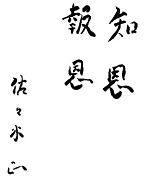 知恩
報恩
佐々木正